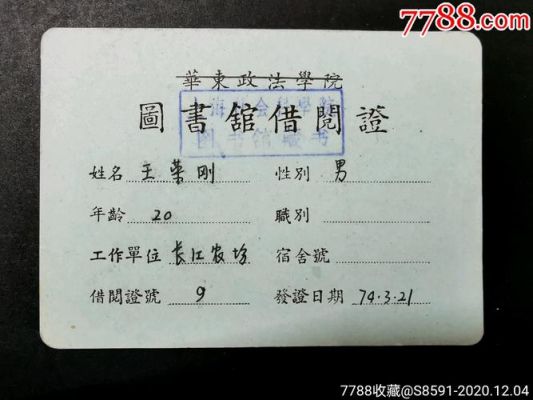 7788.com
華東政法學院
上海社会科学院
图书馆藏书
圖書舘借閲證
姓名 王荣刚 性別 男
年齡 20 職別
工作單位 长江农场 宿舍號
借閲證號 9 發證日期 74.3.21
7788收藏@S8591-2020.12.04